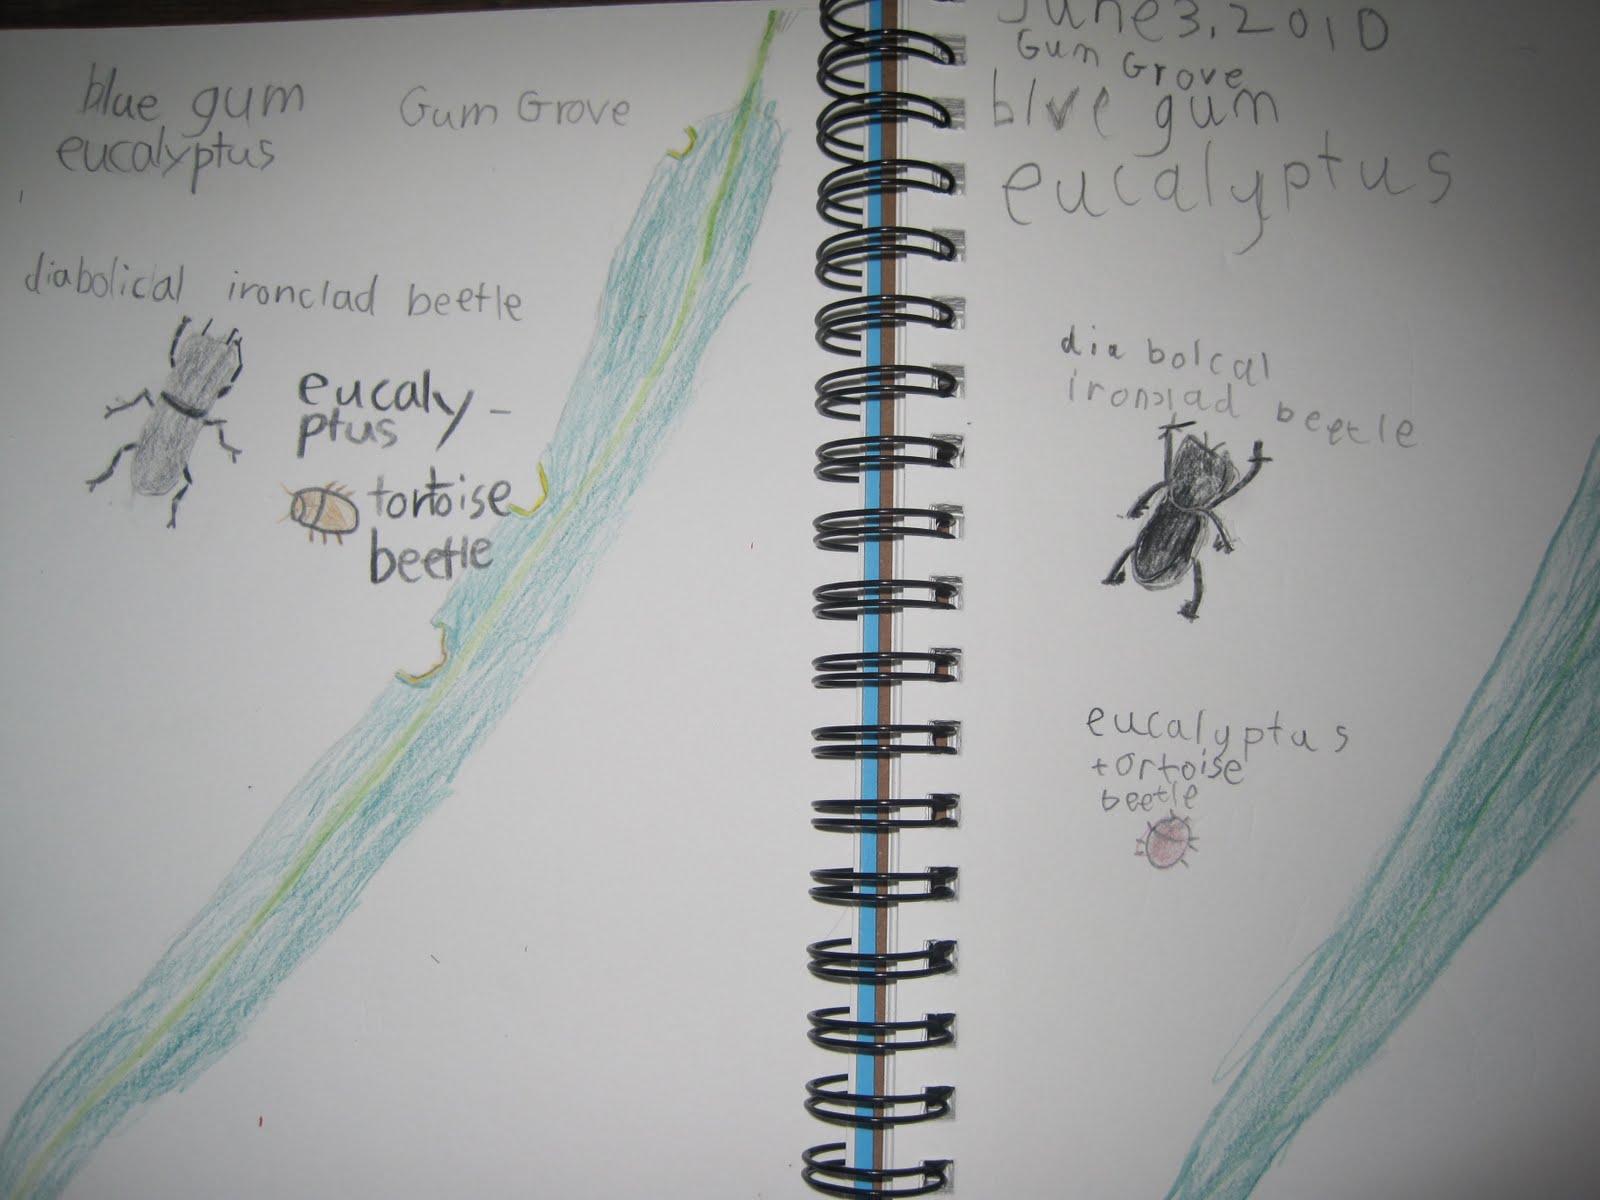 blue gum
eucalyptus
Gum Grove
diabolical ironclad beetle
eucaly-
ptus
tortoise
beetle
June 3, 2010
Gum Grove
blve gum
eucalyptus
diabolcal
ironclad beetle
eucalyptus
tortoise
beetle